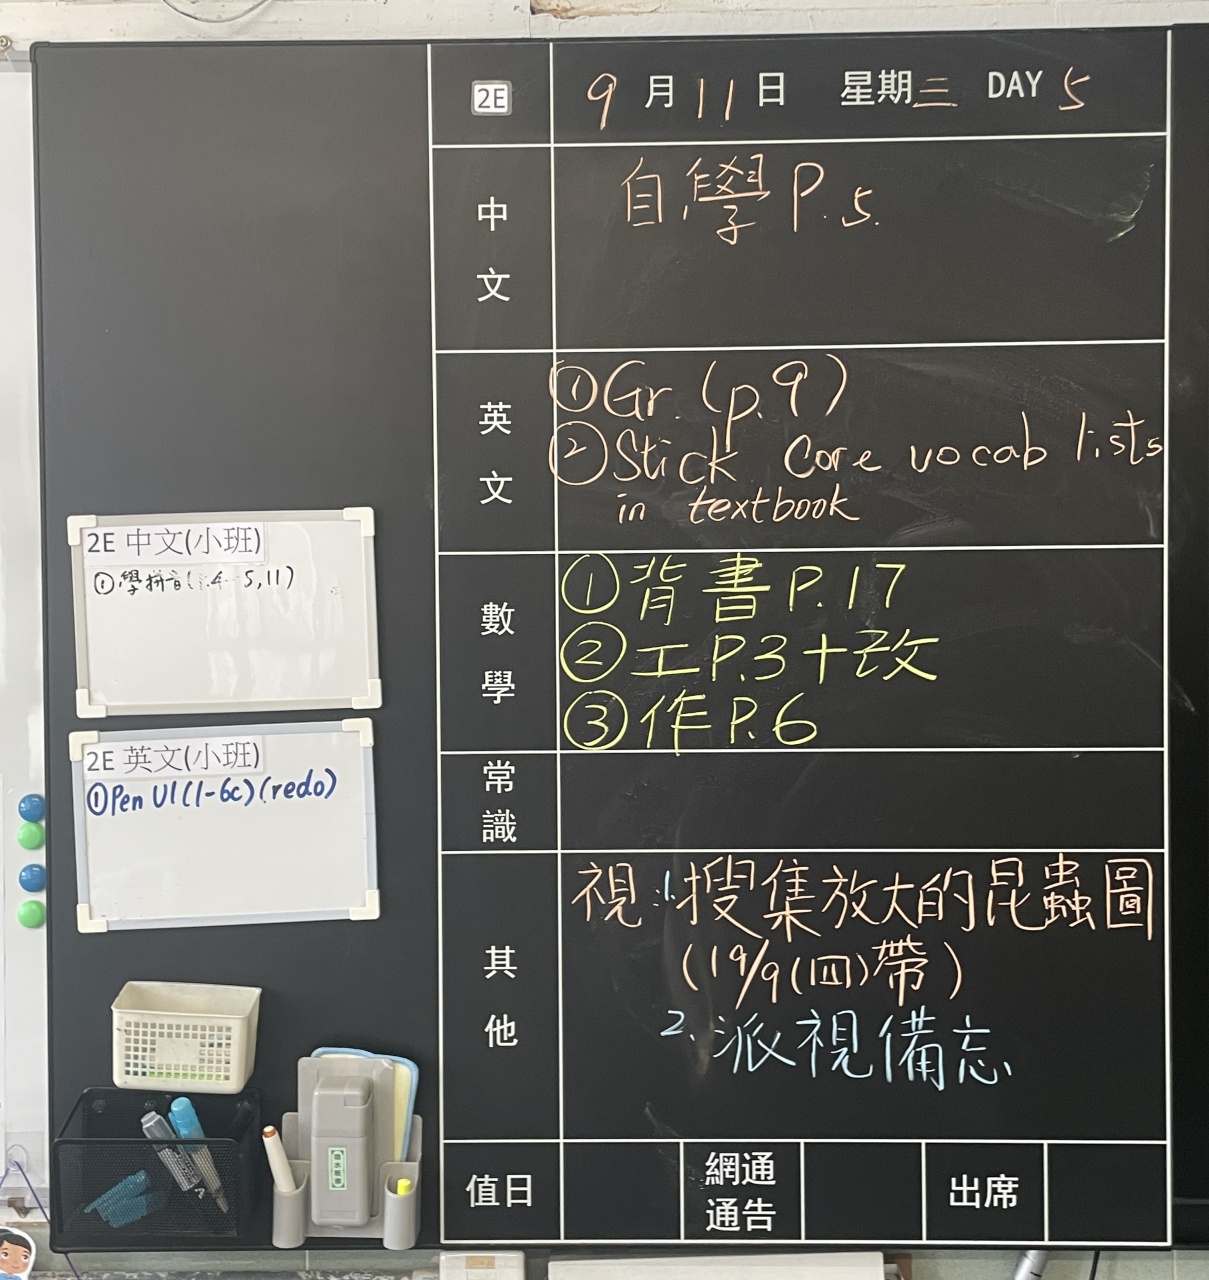 2E 9月11日 星期三 DAY 5
中文
自學P.5.
英文
①Gr. (p.9)
②Stick Core vocab lists
in textbook
數學
①背書P.17
②工P.3+改
③作P.6
常識
其他
視:1.搜集放大的昆蟲圖
(19/9(四)帶)
2.派視備忘
值日
網通
通告
出席
2E 中文(小班)
①學拼音( 4-5,11)
2E 英文(小班)
①Pen U1(1-6c)(redo)